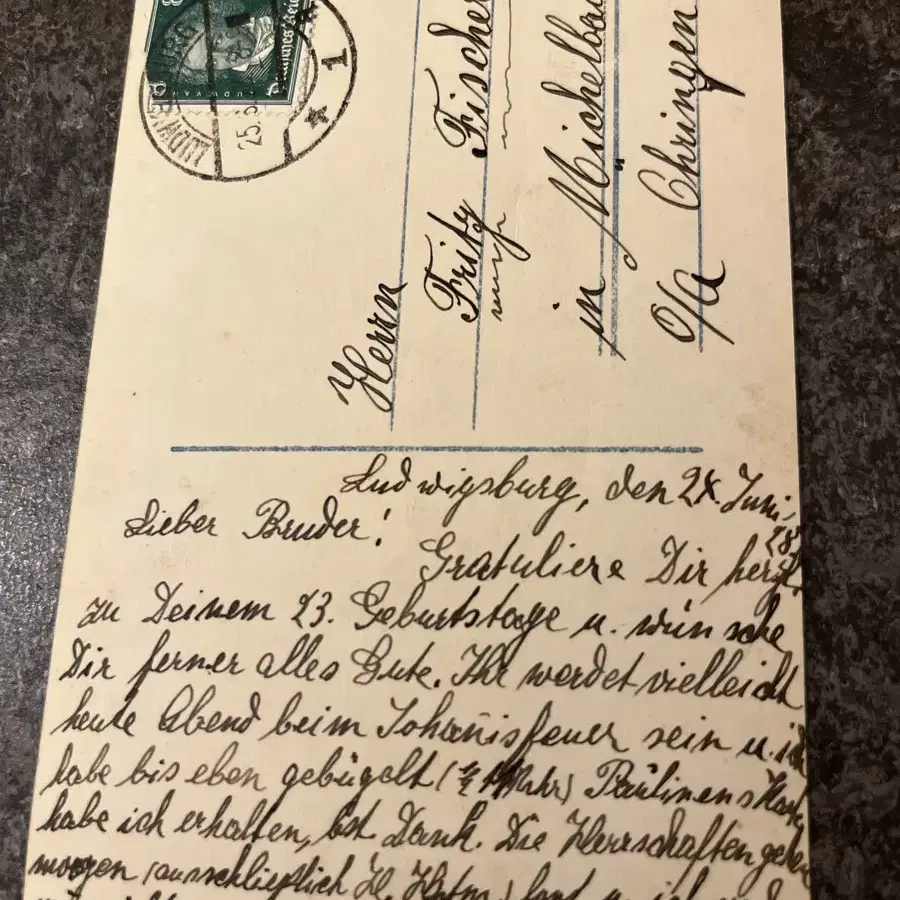 Herrn
Fritz Fischer
in Michelba
O/A Öhringen
Ludwigsburg, den 24. Juni,
28.
Lieber Bruder!
Gratuliere Dir herzl.
zu Deinem 23. Geburtstage u. wünsche
Dir ferner alles Gute. Ihr werdet vielleicht
heute Abend beim Johanisfeuer sein u. ich
habe bis eben gebügelt Paulinens Karte
habe ich erhalten, bst. Dank. Die Herrschaften gehen
morgen (ausschließlich H. fort u. ich
8
25.
1